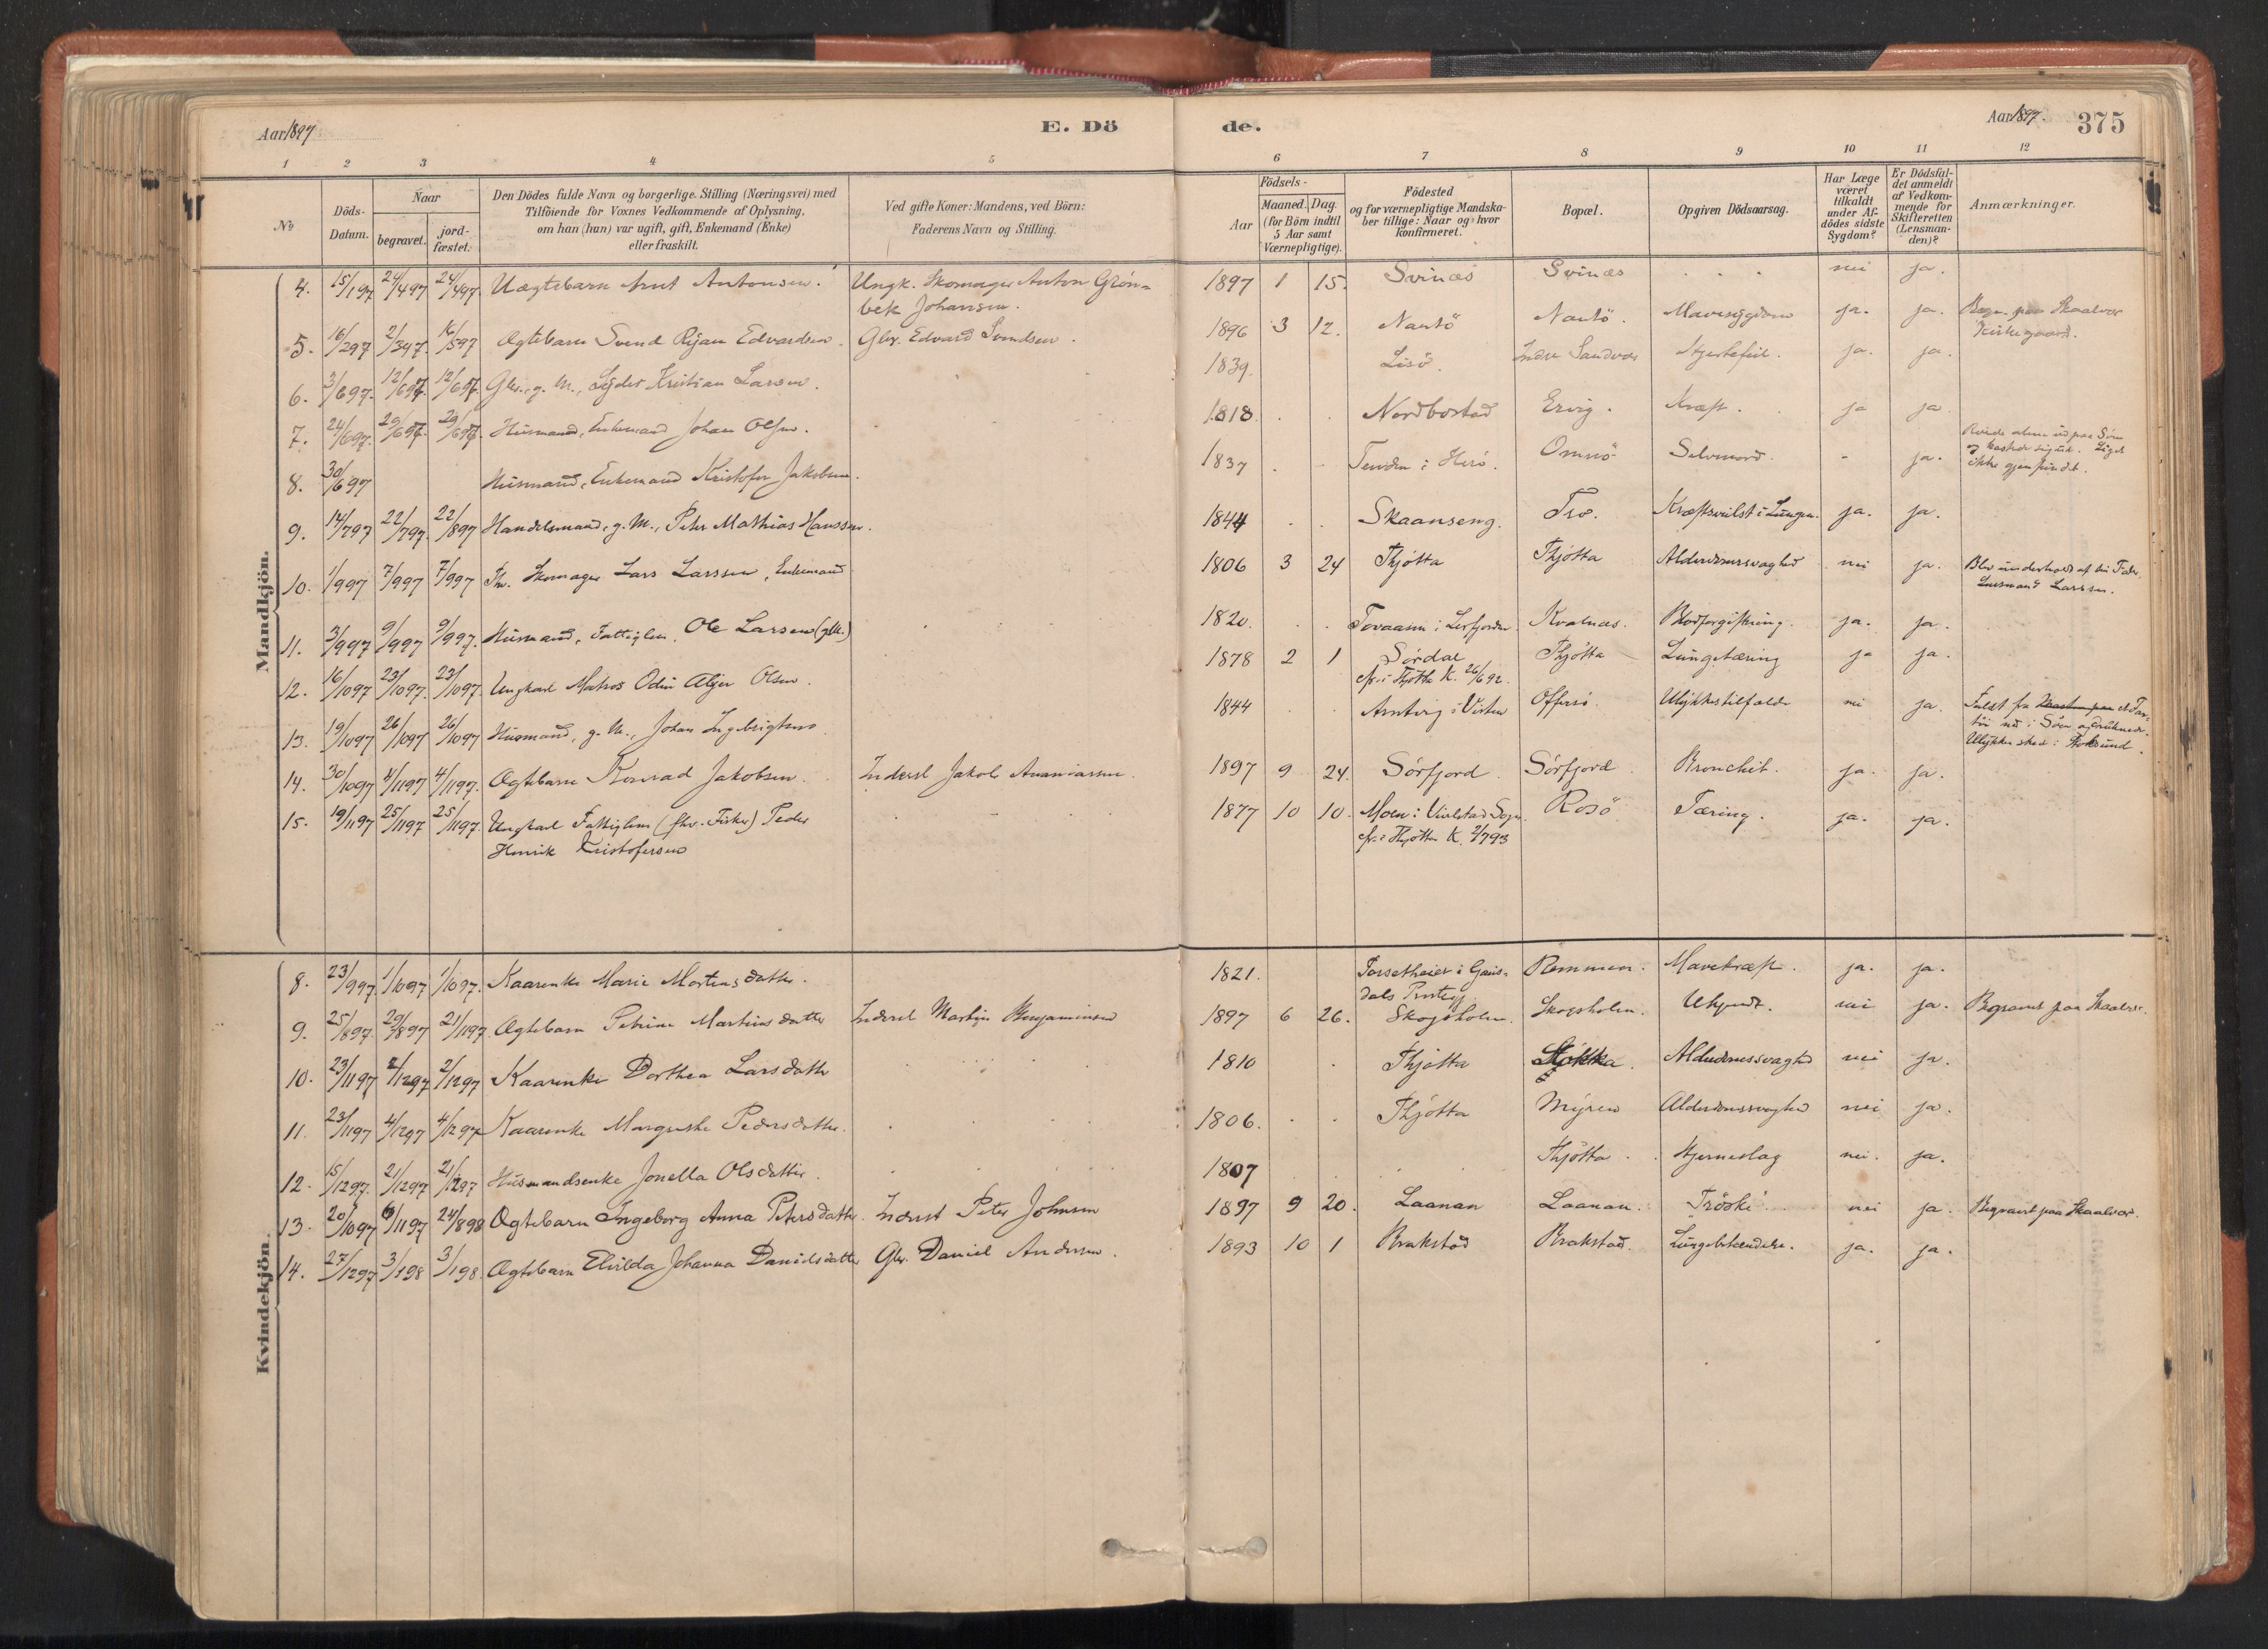 Aar 1897
E. Dö
de.
Aar 1897.
375
1 2 3 4 5 6 7 8 9 10 11 12
No
Döds-Datum.
Naar
begravet.
jord-fæstet.
Den Dödes fulde Navn og borgerlige Stilling (Næringsvei) med
Tilföiende for Voxnes Vedkommende af Oplysning,
om han (hun) var ugift, gift, Enkemand (Enke)
eller fraskilt.
Ved gifte Koner: Mandens, ved Börn:
Faderens Navn og Stilling.
Födsels-
Aar
Maaned. Dag
(for Börn indtil
5 Aar samt
Værnepligtige).
Födested
og for værnepligtige Mandska-
ber tillige: Naar og hvor
konfirmeret.
Bopæl.
Opgiven Dödsaarsag.
Har Læge
været
tilkaldt
under Af-
dödes sidste
Sygdom?
Er Dödsfal-
det anmeldt
af Vedkom-
mende for
Skifteretten
(Lensman-
den)?
Anmærkninger.
Mandkjön.
4. 15/197 24/497 24/497. Uægtebarn Arnt Antonsen. Ungk. Skomager Anton Grön-
bek Johansen. 1897 1 15. Svinæs Svinæs . . . nei ja.
5. 16/297 2/347. 16/597 Ægtebarn Svend Rijan Edvardsen. Gbr. Edvard Svendsen. 1896 3 12. Nautö Nautö. Mavesygdom ja. ja. Begr. paa Skaalvær
Kirkegaard.
6. 3/697. 12/697. 12/697. Gbr., g. M., Kristian Larsen. 1839. Lisö. Indre Sandvær Hjertefeil. ja. ja.
7. 24/697. 29/697. 29/697. Husmand, Enkemand Johan Olsen. 1818 . . Nordbostad Ervig. Kræft. ja ja
8. 30/697 Husmand, Enkemand Kristofer Jakobsen. 1837 . . i Herö. Omnö Selvmord. - ja. Roede alene ud paa Söen
og kastede sig ud. Liget
ikke gjenfundet.
9. 14/797 22/797. 22/897 Handelsmand, g. M., Peter Mathias Hanssen. 1844 . . Skaanseng. Tro. Kræftsvulst i Lungen. ja. ja.
10. 1/997 7/997 7/997 Fhv. Skomager Lars Larssen, Enkemand 1806 3 24 Thjötta Thjötta Alderdomssvaghed nei ja. Blev underholdt af sin
Lensmand Larssen.
11. 3/997 9/997 9/997. Husmand, Fattiglem, Ole Larsen (g.M.) 1820. . . Tovaasen i Leirfjorden. Kvalnæs. Blodforgiftning. ja. ja.
12. 16/1097 23/1097. 23/1097. Ungkarl Matros Odin Olsen. 1878 2 1 Sördal
cfr. i Thjötta K. 26/692. Thjötta Lungetæring ja ja.
13. 19/1097 26/1097 26/1097 Husmand, g. M., Johan Ingebrigtsen 1844 i Visten Offersö. Ulykkestilfælde nei ja. Faldt fra et Far-
töi ud i Söen og druknede.
Ulykken skede i Stoksund.
14. 30/1097 4/1197 4/1197. Ægtebarn Konrad Jakobsen. Inderst Jakob Ananiassen. 1897 9 24. Sörfjord Sörfjord. Bronchit. ja. ja.
15. 19/1197 25/1197 25/1197. Ungkarl Fattiglem (fhv. Fisker) Peder
Henrik Kristofersen 1877 10 10. Moen i Sogn.
cfr. i Thjötta K. 2/793 Rosö Tæring. ja. ja.
Kvindekjön.
8. 23/997. 1/1097 1/1097. Kaarenke Marie Mortensdatter. 1821. i Gaus-
dals Prstegj. Remmen. Mavekræft. ja. ja.
9. 25/897. 29/897 21/1197 Ægtebarn Petrine Martinsdatter Inderst Martin Benjaminsen 1897 6 26. Skogsholm. Skogsholm. Ukjendt. nei ja. Begravet paa Skaalvær.
10. 23/1197 2/1297 2/1297 Kaarenke Dorthea Larsdatter 1810 . Thjötta Stokka. Alderdomssvaghed nei ja.
11. 23/1197 4/1297 4/1297 Kaarenke Margrethe Pedersdatter. 1806. . . Thjötta Myren Alderdomssvaghed nei ja.
12. 15/1297. 21/1297 21/1297 Husmandsenke Jonella Olsdatter. 1807 Thjötta. Hjerneslag nei. ja.
13. 20/1097 6/1197 24/898 Ægtebarn Ingeborg Anna Petersdatter. Inderst Peter Johnsen 1897 9 20. Laanan Laanan. Tröske. nei ja. Begravet paa Skaalvær.
14. 27/1297 3/198 3/198. Ægtebarn Elvilda Johanna Danielsdatter Gbr. Daniel Andersen. 1893 10 1 Brakstad Brakstad. Lungebetændelse. ja. ja.